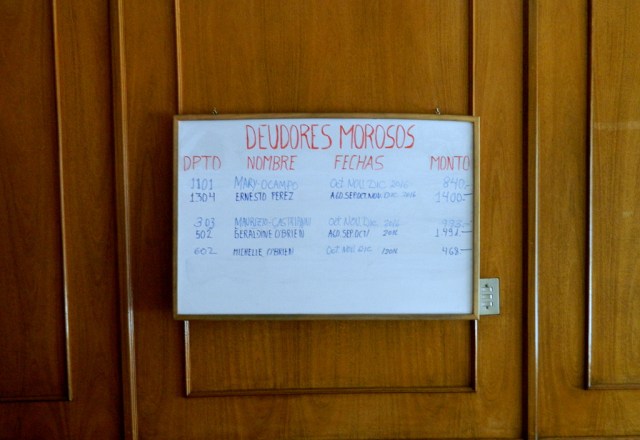 DEUDORES MOROSOS
DPTO NOMBRE FECHAS MONTO
1101 MARY OCAMPO Oct NOV. Dic 2006 840.-
1304 ERNESTO PEREZ AGO.SEP.OCT.NOV Dic 2006 1400.-
303 MAURICIO Oct NOV. Dic. 2006
502 GERALDINE O'BRIEN AGO.SEP.OCT/ 2006
602 MICHELLE O'BRIEN Oct Nov. Dic. 2006 468.-